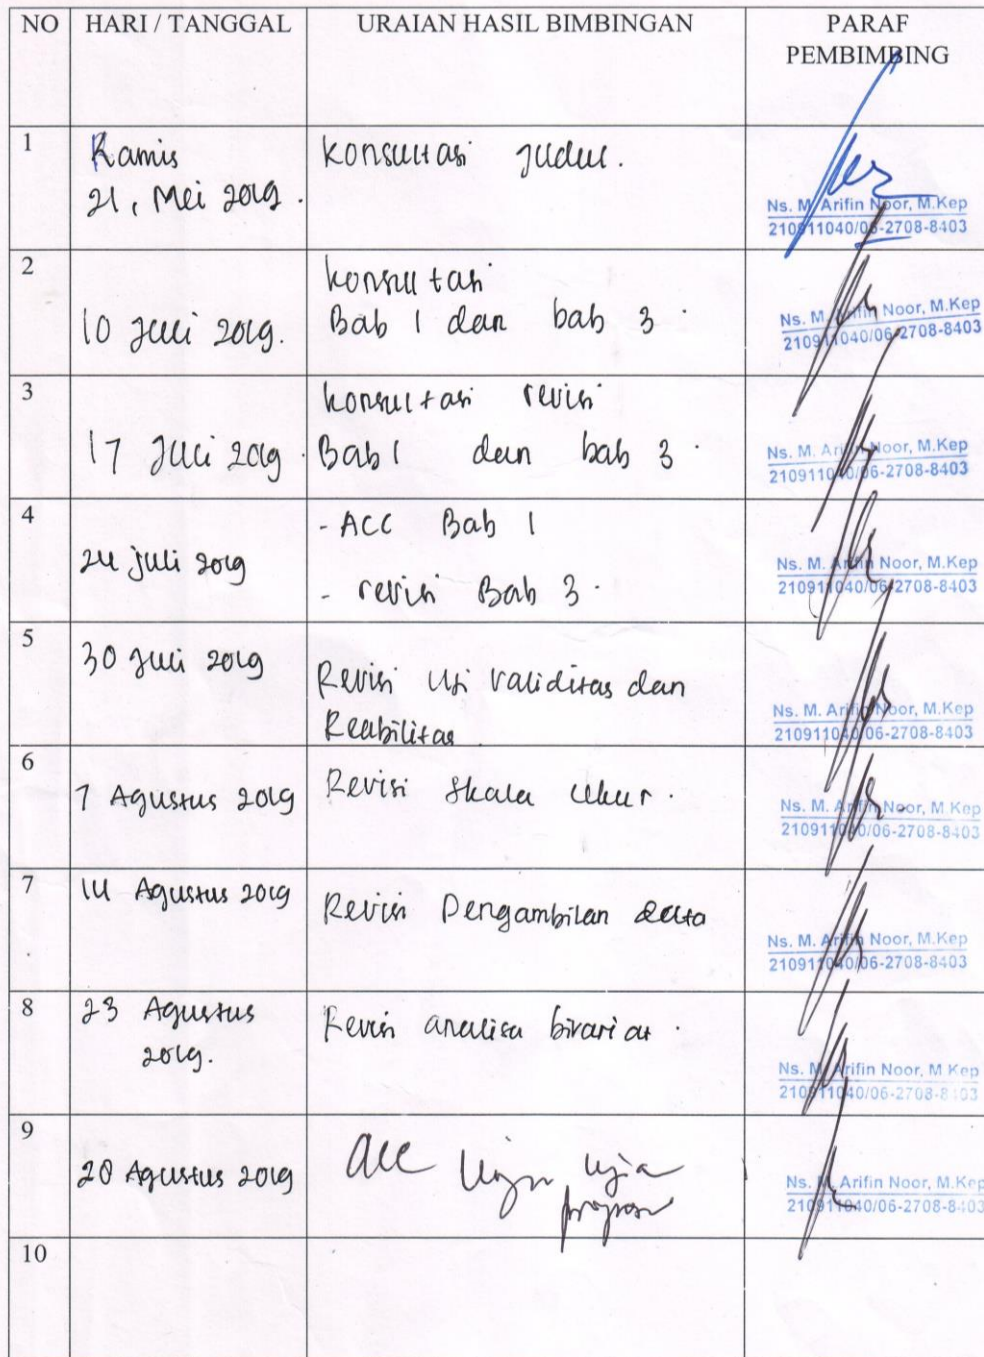 NO HARI / TANGGAL URAIAN HASIL BIMBINGAN PARAF
PEMBIMBING
1 Kamis Konsultasi Judul.
21, Mei 2019.
Ns. M. Arifin Noor, M.Kep
210911040/06-2708-8403
2 konsultasi
10 Juli 2019. Bab 1 dan bab 3.
Ns. M. Arifin Noor, M.Kep
210911040/06-2708-8403
3 konsultasi revisi
17 Juli 2019. Bab 1 dan bab 3.
Ns. M. Arifin Noor, M.Kep
210911040/06-2708-8403
4 - ACC Bab 1
24 juli 2019
- revisi Bab 3.
Ns. M. Arifin Noor, M.Kep
210911040/06-2708-8403
5 30 Juli 2019 Revisi Uji validitas dan
Reabilitas.
Ns. M. Arifin Noor, M.Kep
210911040/06-2708-8403
6 7 Agustus 2019 Revisi Skala Ukur.
Ns. M. Arifin Noor, M.Kep
210911040/06-2708-8403
7 14 Agustus 2019 Revisi Pengambilan data
Ns. M. Arifin Noor, M.Kep
210911040/06-2708-8403
8 23 Agustus Revisi analisa bivariat.
2019.
Ns. M. Arifin Noor, M.Kep
210911040/06-2708-8403
9 28 Agustus 2019 acc ujian
Ns. M. Arifin Noor, M.Kep
210911040/06-2708-8403
10